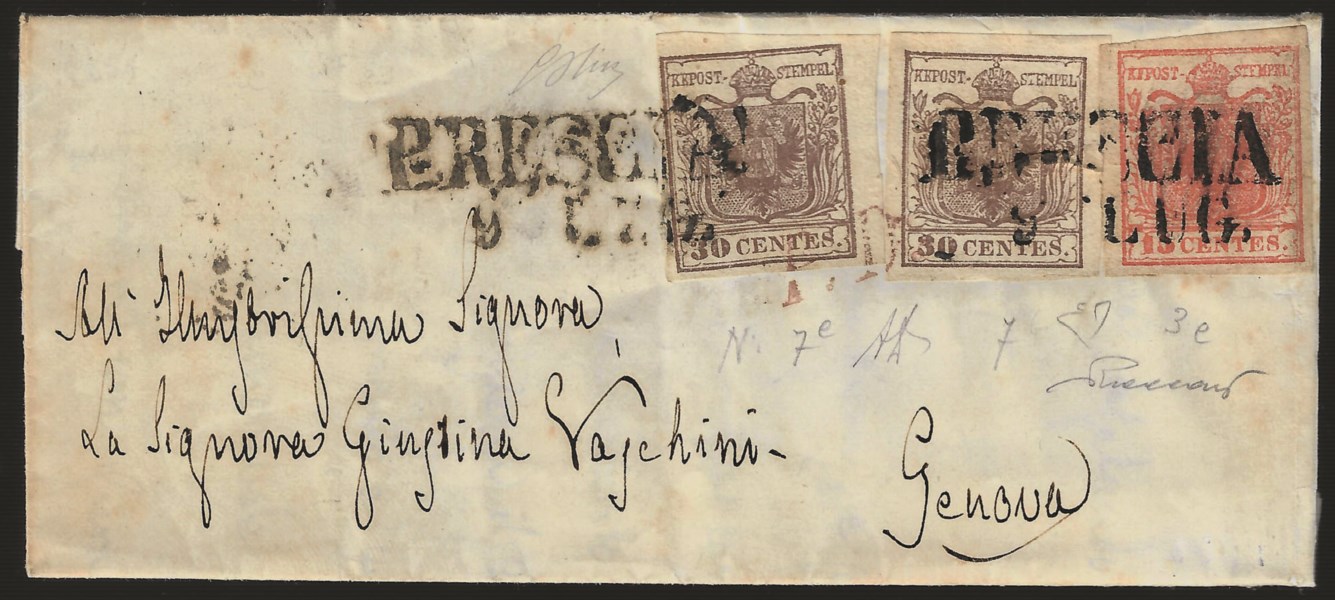 KKPOST-STEMPEL
KKPOST-STEMPEL
KKPOST-STEMPEL
BRESCIA
BRESCIA
9 LUG.
9 LUG.
30 CENTES.
30 CENTES.
15 CENTES.
P.D.
All Illustrissima Signora
La Signora Giustina Vaschini-
Genova
N. 7e
7
3e